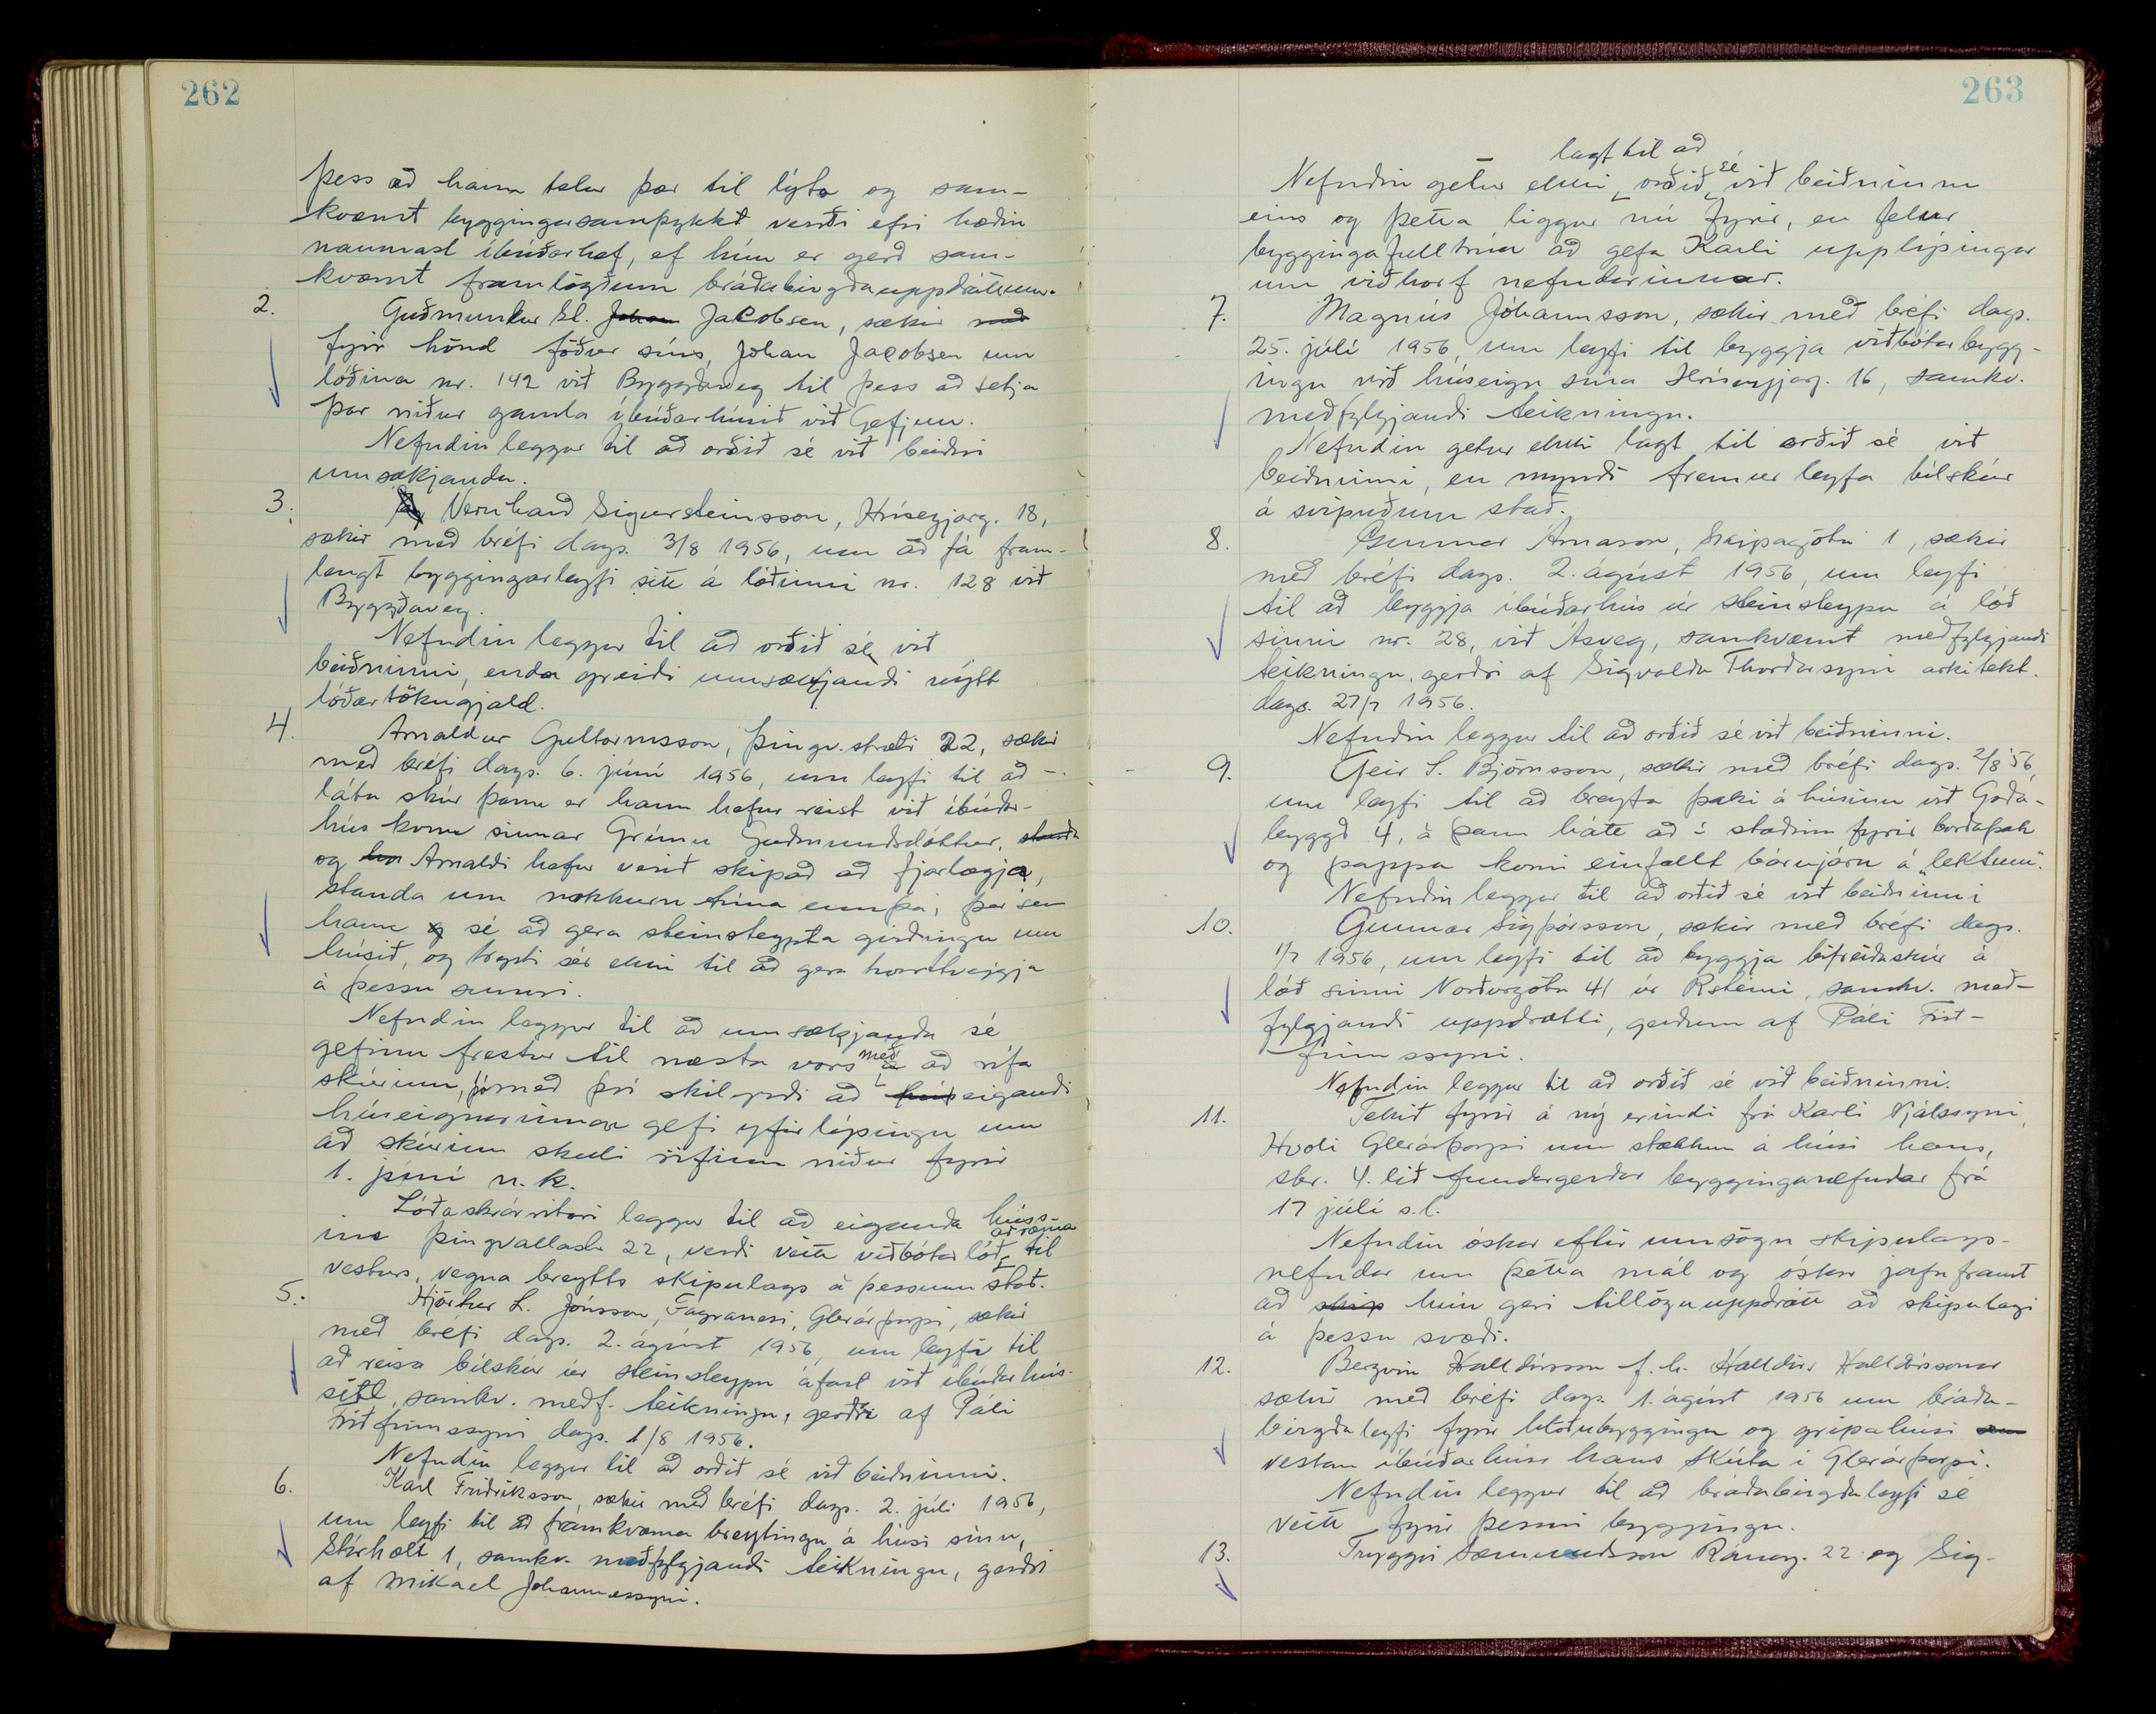 262
þess að hann telur þær til lýta og sam-
kvæmt byggingarsamþykkt verði efri hæðin
naumast íbúðarhæf, ef hún er gerð sam-
kvæmt framlögðum bráðabirgðauppdráttum.
2. Guðmundur El. Johan Jacobsen, sækir með
fyrir hönd föður síns, Johan Jacobsen um
lóðina nr. 142 við Byggðaveg til þess að setja
þar niður gamla íbúðarhúsið við Gefjun.
Nefndin leggur til að orðið sé við beiðni
umsækjanda.
3. Vernharð Sigursteinsson, Hríseyjarg. 18,
sækir með bréfi dags. 3/8 1956, um að fá fram-
lengt byggingarleyfi sitt á lóðinni nr. 128 við
Byggðaveg.
Nefndin leggur til að orðið sé við
beiðninni, enda greiði umsækjandi nýtt
lóðartökugjald.
4. Arnaldur Guttormsson, Þingv.stræti 22, sækir
með bréfi dags. 6. júní 1956, um leyfi til að -
láta skúr þann er hann hefur reist við íbúðar-
hús konu sinnar Grímu Guðmundsdóttur, standa
og Arnaldi hefur verið skipað að fjarlægja,
standa um nokkurn tíma ennþá, þar sem
hann sé að gera steinsteypta girðingu um
húsið, og treysti sér ekki til að gera hvorttveggja
á þessu sumri.
Nefndin leggur til að umsækjanda sé
gefinn frestur til næsta vors með að rífa
skúrinn, þó með því skilyrði að hús eigandi
húseignarinnar gefi yfirlýsingu um
að skúrinn skuli rifinn niður fyrir
1. júní n.k.
Lóðaskrárritari leggur til að eiganda húss-
ins Þingvallastr 22, verði veitt viðbótarlóð að ræma til
vesturs, vegna breytts skipulags á þessum stað.
5. Hjörtur L. Jónsson, Fagranesi, Glerárþorpi, sækir
með bréfi dags. 2. ágúst 1956, um leyfi til
að reisa bílskúr úr steinsteypu áfast við íbúðarhús-
sitt, samkv. meðf. teikningu, gerðri af Páli
Friðfinnssyni dags. 1/8 1956.
Nefndin leggur til að orðið sé við beiðninni.
6. Karl Friðriksson, sækir með bréfi dags. 2. júlí 1956,
um leyfi til að framkvæma breytingu á húsi sínu,
1, samkv. meðfylgjandi teikningu, gerðri
af Mikael Jóhannessyni.
263
lagt til að
Nefndin getur ekki orðið sé við beiðninni
eins og þetta liggur nú fyrir, en felur
byggingafulltrúa að gefa Karli upplýsingar
um viðhorf nefndarinnar.
7. Magnús Jóhannsson, sækir með bréfi dags.
25. júlí 1956, um leyfi til byggja viðbótarbygg-
ingu við húseign sína Hríseyjarg. 16, samkv.
meðfylgjandi teikningu.
Nefndin getur ekki lagt til orðið sé við
beiðninni, en myndi fremur leyfa bílskúr
á svipuðum stað.
8. Gunnar Árnason, Skipagötu 1, sækir
með bréfi dags. 2. ágúst 1956, um leyfi
til að byggja íbúðarhús úr steinsteypu á lóð
sinni nr. 28, við Ásveg, samkvæmt meðfylgjandi
teikningu, gerðri af Sigvalda Thordarsyni arkitekt.
dags. 27/7 1956.
Nefndin leggur til að orðið sé við beiðninni.
9. Geir S. Björnsson, sækir með bréfi dags. 2/8 '56,
um leyfi til að breyta þaki á húsinu við Goða-
byggð 4, á þann hátt að í staðinn fyrir borðaþak
og pappa komi einfallt bárujárn á "lektum".
Nefndin leggur til að orðið sé við beiðninni
10. Gunnar Sigþórsson, sækir með bréfi dags.
1/7 1956, um leyfi til að byggja bifreiðaskúr á
lóð sinni Norðurgötu 41 úr Rsteini, samkv. með-
fylgjandi uppdrætti, gerðum af Páli Frið-
finnssyni.
Nefndin leggur til að orðið sé við beiðninni.
11. Tekið fyrir á ný erindi frá Karli Njálssyni,
Hvoli Glerárþorpi um stækkun á húsi hans,
sbr. 4. lið fundargerðar bygginganefndar frá
17 júlí s.l.
Nefndin óskar eftir umsögn skipulags-
nefndar um þetta mál og óskar jafnframt
að skip hún geri tillöguuppdrátt að skipulagi
á þessu svæði.
12. Bergvin Halldórsson f.h. Halldórs Halldórssonar
sækir með bréfi dags. 1. ágúst 1956 um bráða-
birgðaleyfi fyrir hlöðubyggingu og gripahúsi sem
vestan íbúðarhúss hans Skúta í Glerárþorpi.
Nefndin leggur til að bráðabirgðaleyfi sé
veitt fyrir þessari byggingu.
13. Tryggvi Sæmundsson Ránarg. 22 og Sig-